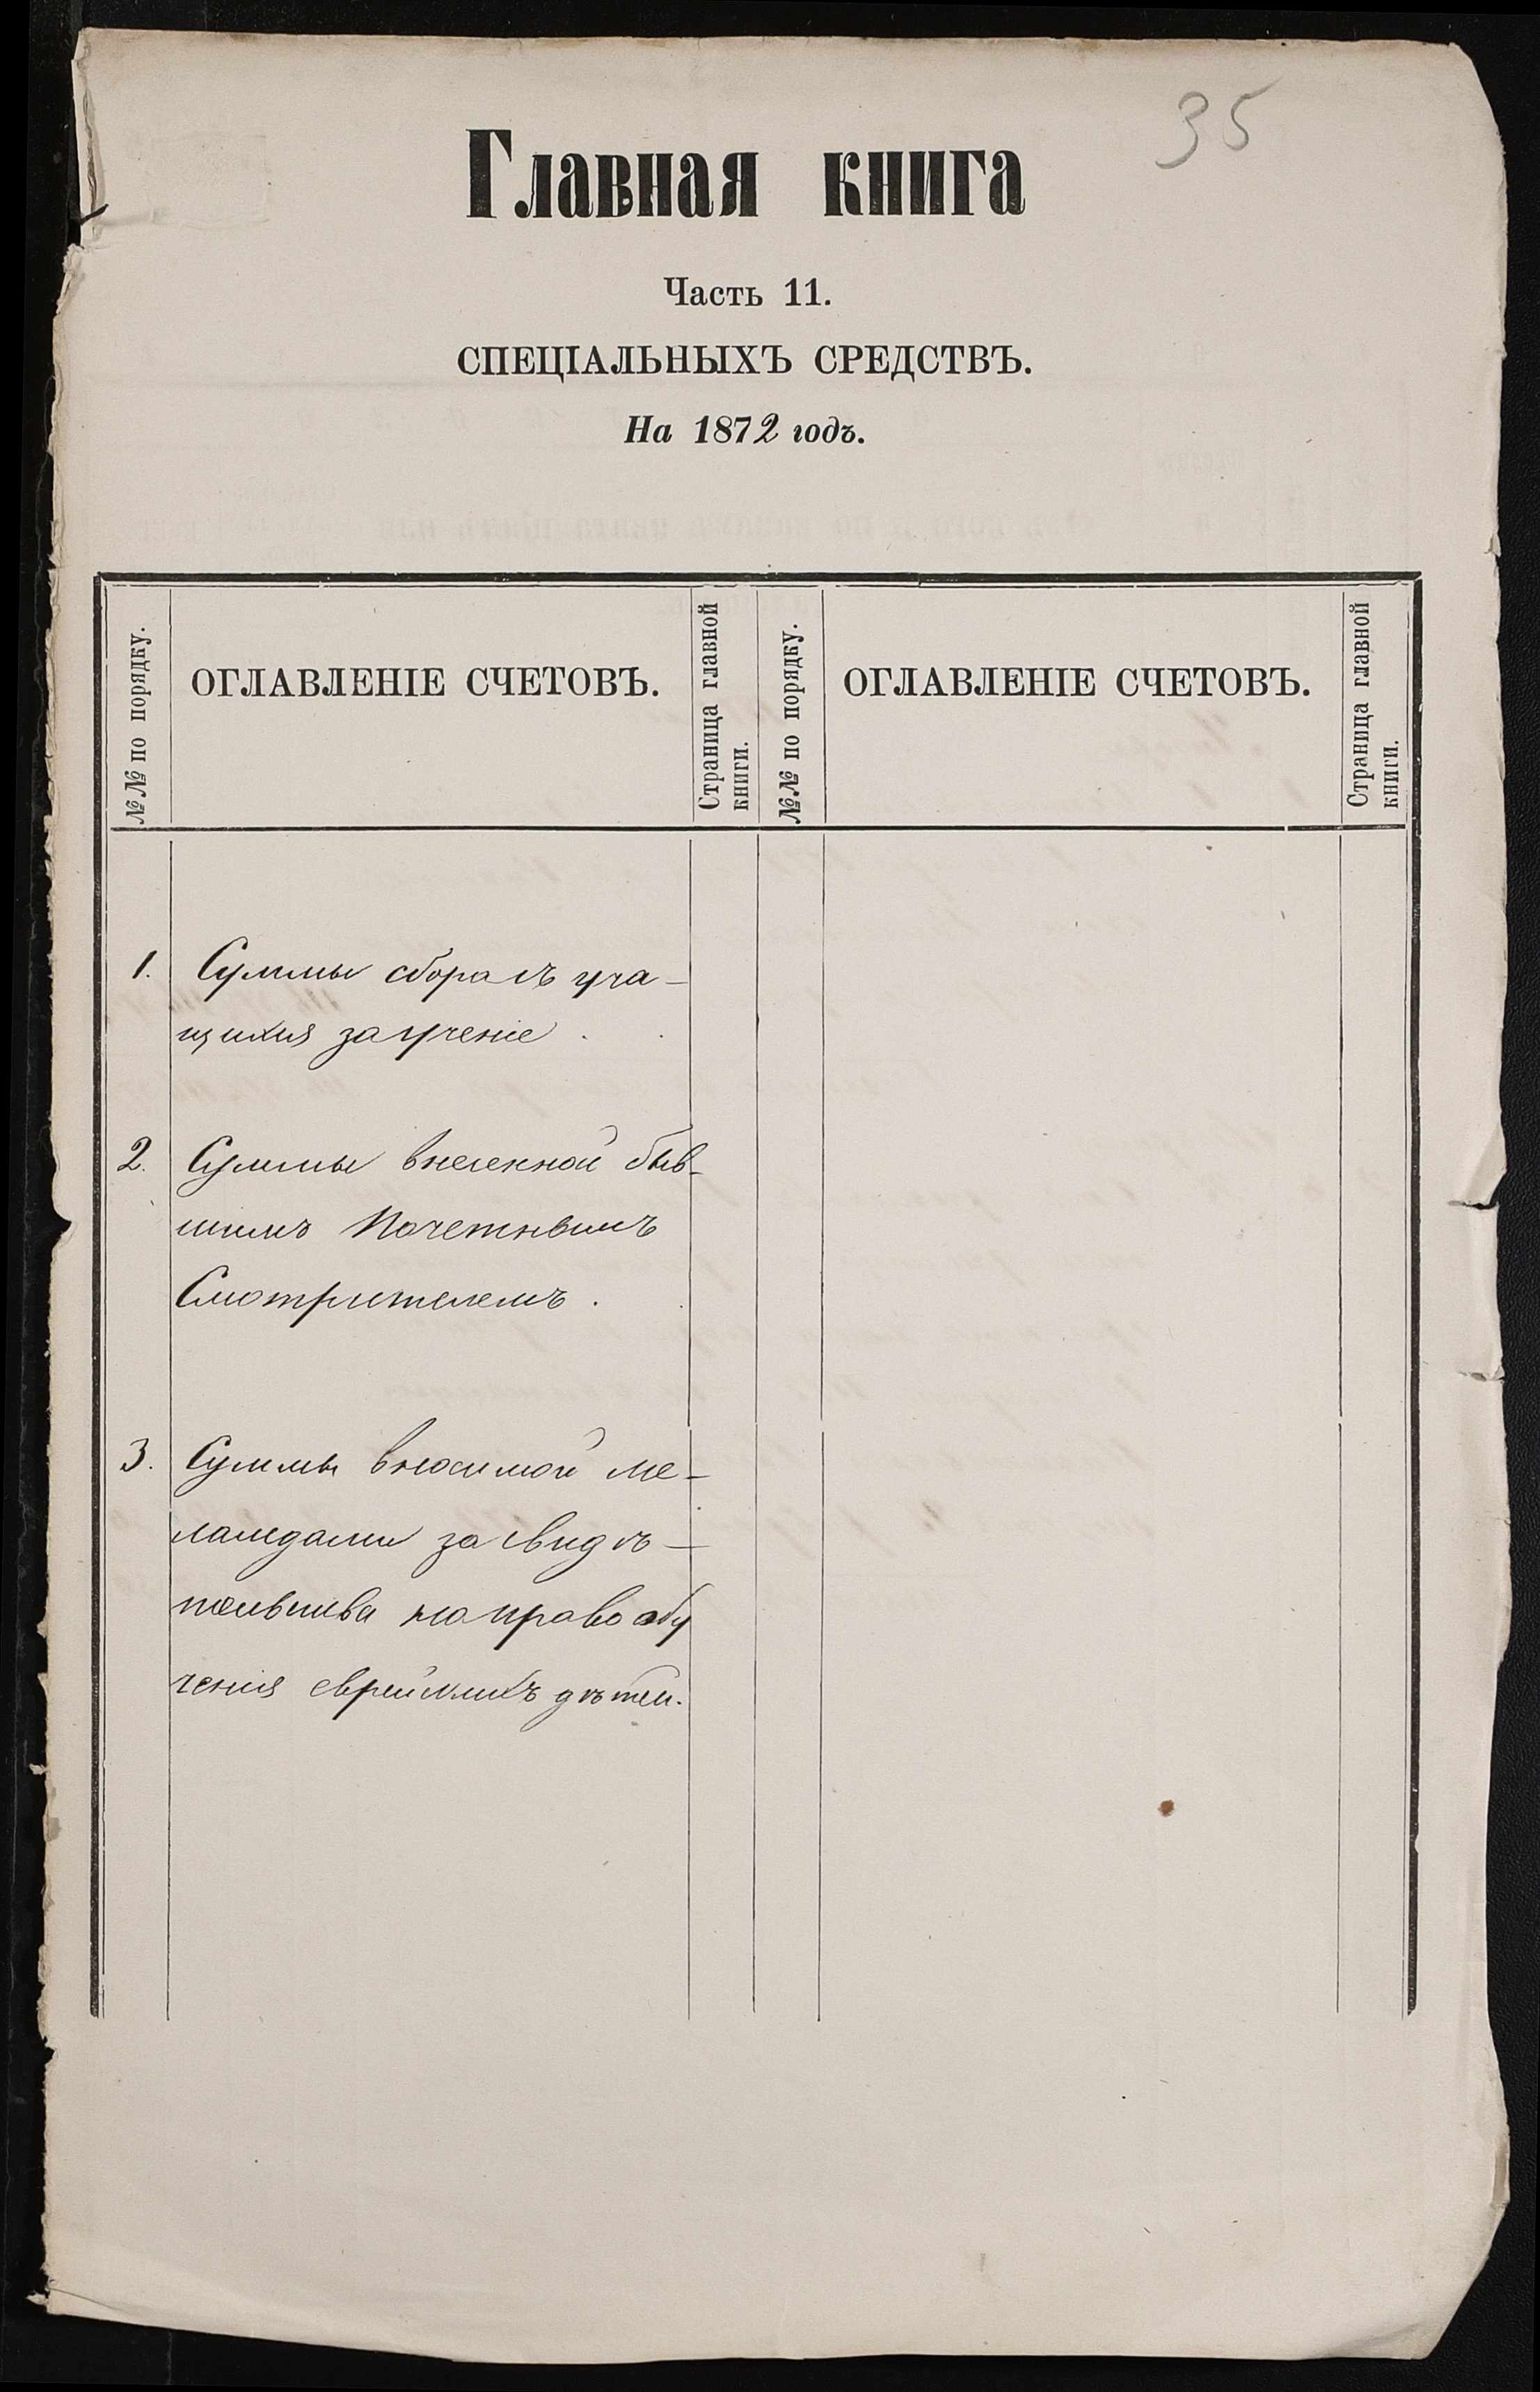 35
Главная книга
Часть 11.
СПЕЦІАЛЬНЫХЪ СРЕДСТВЪ.
На 1872 годъ.
№№ по порядку.
ОГЛАВЛЕНІЕ СЧЕТОВЪ.
Страница главной
книги.
№№ по порядку.
ОГЛАВЛЕНІЕ СЧЕТОВЪ.
Страница главной
книги.
1. Суммы сбора съ уча-
щихся за ученіе.
2. Суммы внесенной быв-
шимъ Почетнымъ
Смотрителемъ.
3. Суммы вносимой ме-
ламдами за свидѣ-
тельства на право обу
ченія еврейскихъ дѣтей.